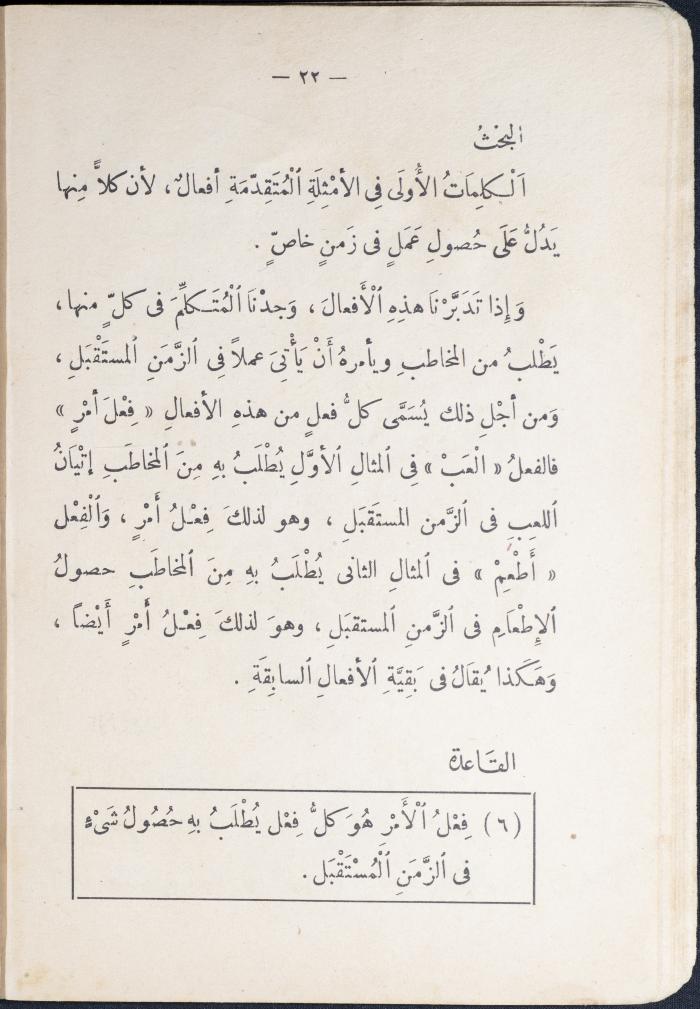 — ٢٢ —
البَحْثُ
اَلْكلِمَاتُ الأُولَى فِى الأمْثِلَةِ الْمُتَقَدِّمَةِ أفعالٌ ، لأن كلاًّ مِنها
يَدُلُّ عَلَى حُصولِ عَمَلٍ فى زَمنٍ خاصٍّ .
وَإِذا تَدَبَّرْنَا هذِهِ الْأَفعالَ ، وَجدْنَا الْمُتَكلِّمَ فى كلّ منها ،
يَطْلبُ من المخاطبِ ويأمرهُ أَنْ يَأْتِىَ عملاً فِى الزَّمَنِ المستَقْبَلِ ،
وَمن أجْلِ ذلك يُسَمَّى كلُّ فعلٍ من هذهِ الأفعالِ « فِعْلَ أمْرٍ »
فالفعلُ « الْعَبْ » فِى المثالِ الأوَّلِ يُطْلَبُ بهِ مِنَ المخاطَبِ إتْيَانُ
اللعِبِ فى الزَّمن المستَقبَلِ ، وهو لذلكَ فِعْلُ أَمْرٍ ، وَالْفِعْل
« أَطْعِمْ » فى المثالِ الثانى يُطْلَبُ بهِ مِنَ المخاطَبِ حصولُ
الإِطْعَامِ فى الزَّمنِ المستقبَلِ ، وهوَ لذلكَ فِعْلُ أَمْرٍ أَيْضاً ،
وَهَكَذا يُقالُ فى بَقِيَّةِ الأفعالِ السابِقَةِ .
القَاعدة
(٦) فِعْلُ الْأَمْرِ هُوَ كلُّ فِعْل يُطْلَبُ بهِ حُصُولُ شَىْءٍ
فى الزَّمَنِ الْمُسْتَقْبَل .